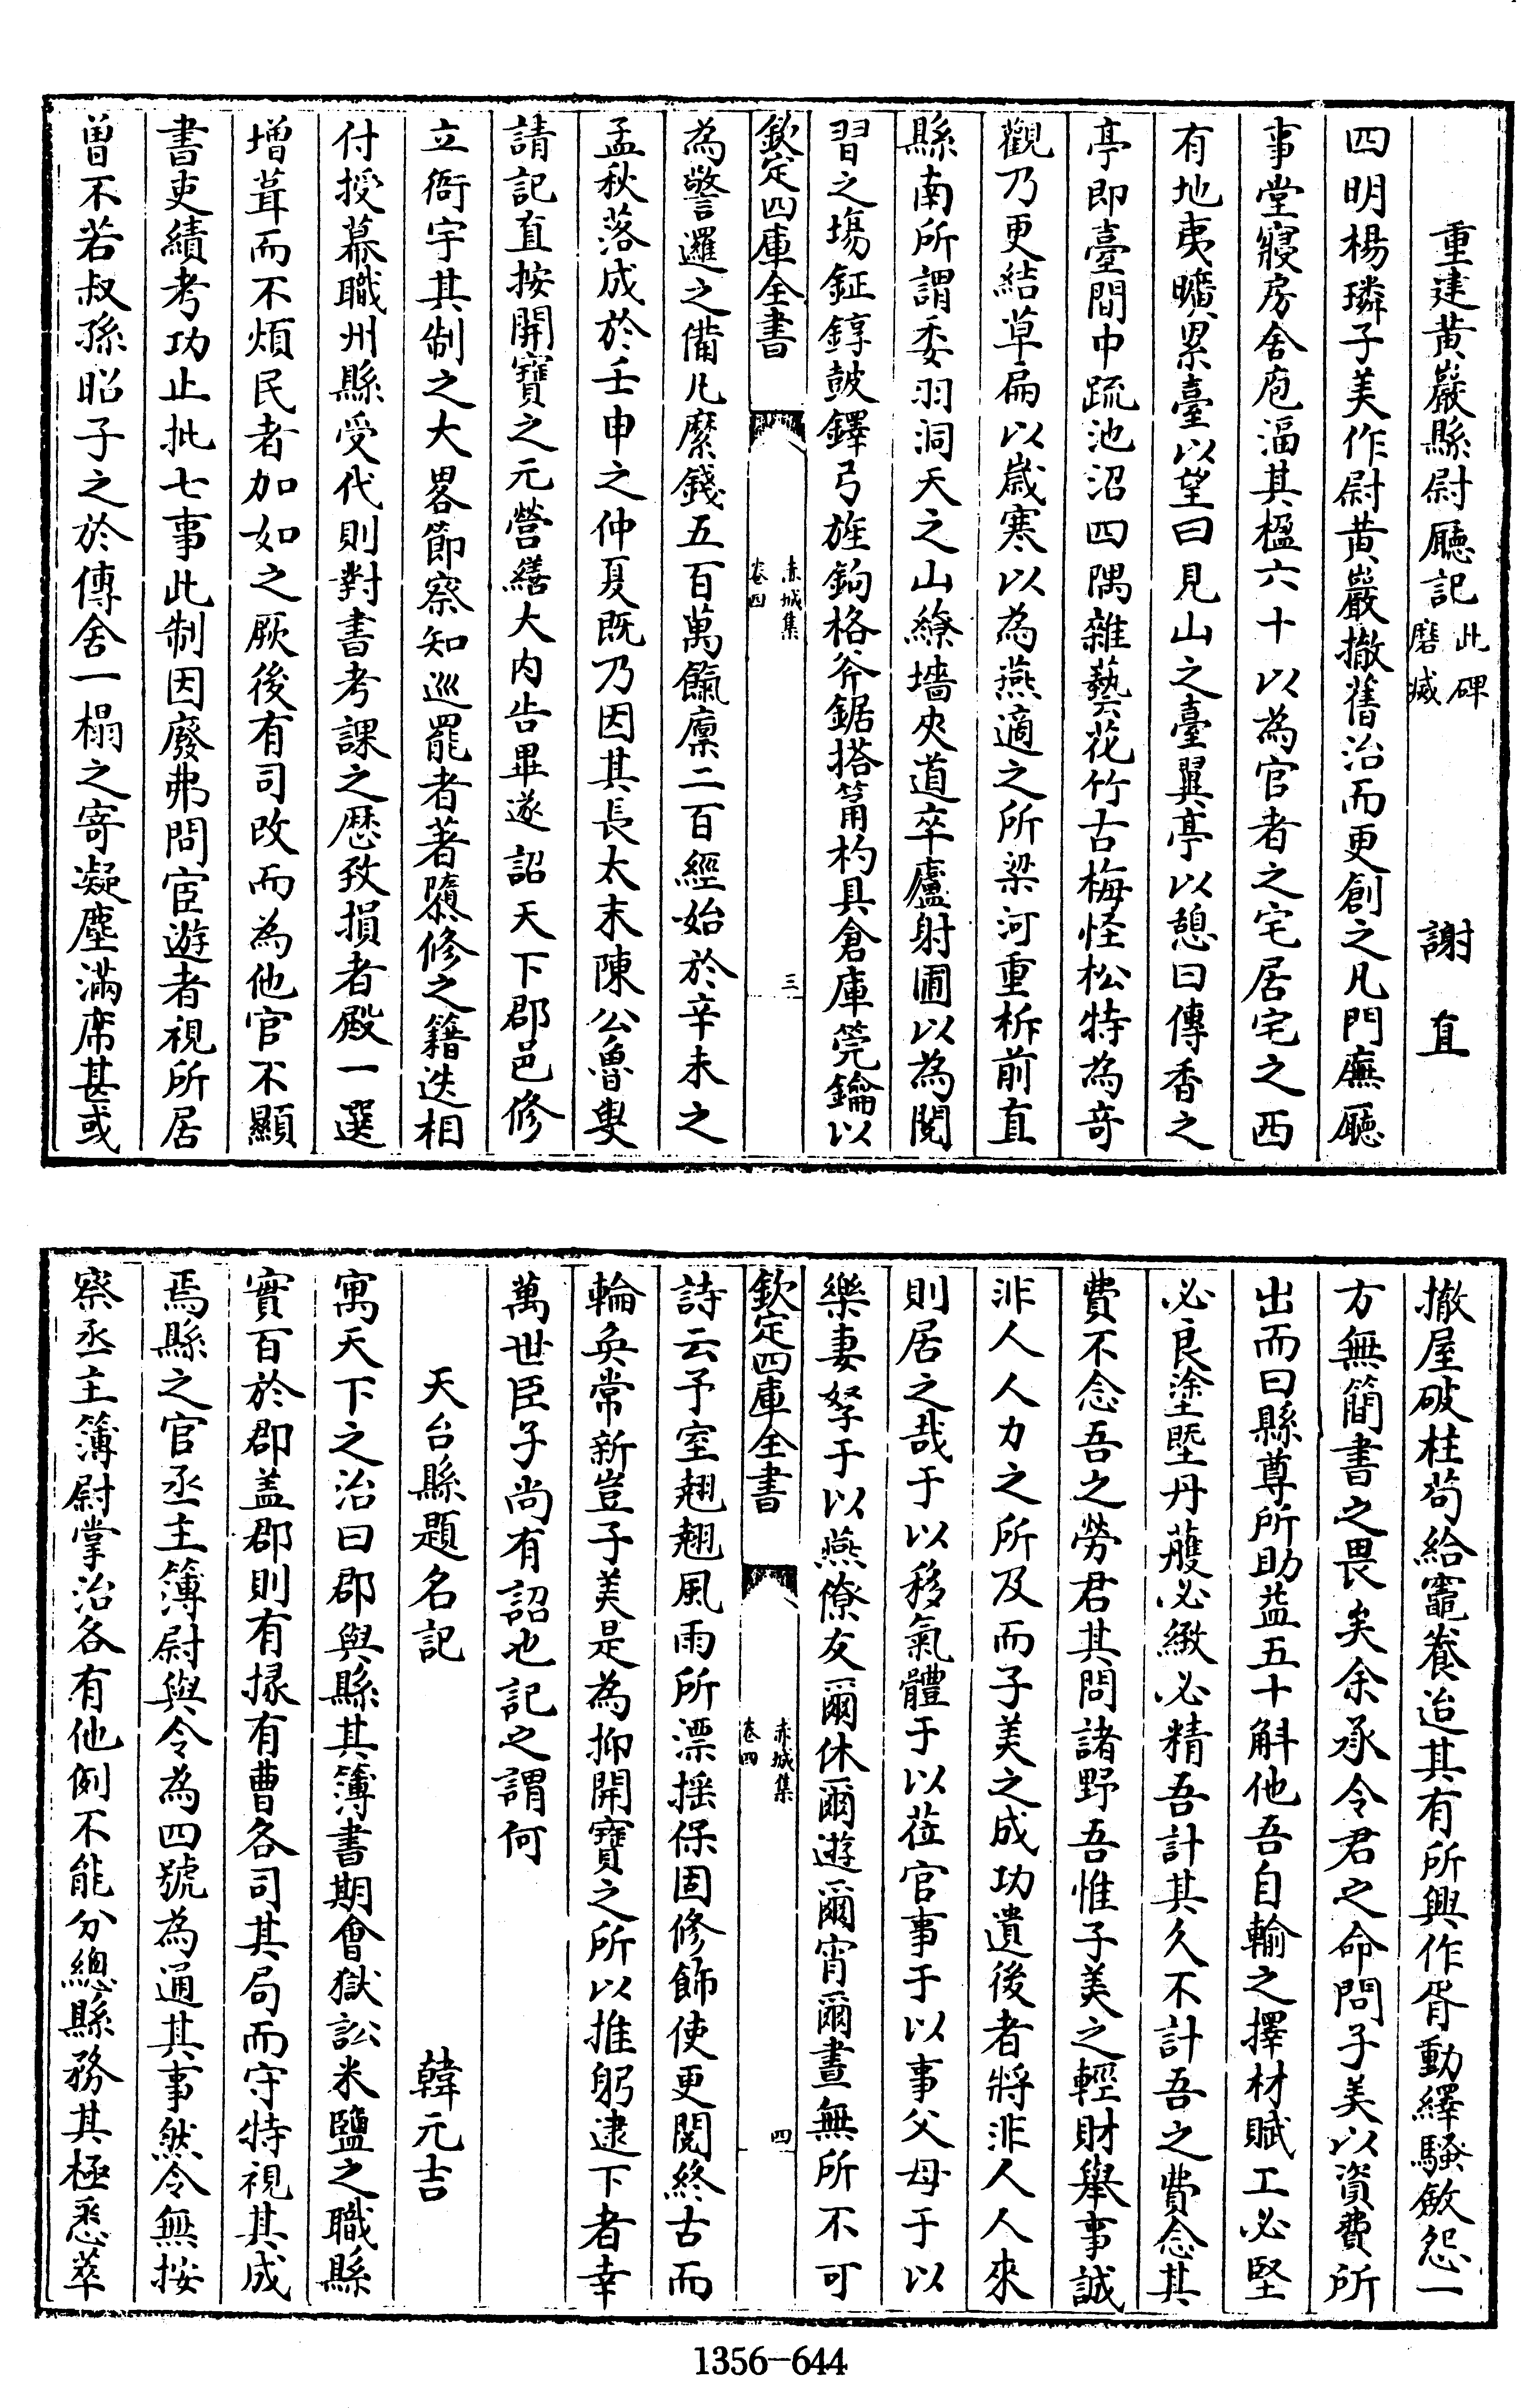 重建黄巖縣尉廳記此碑磨滅 謝直
四明楊璘子美作尉黄巖撤舊治而更創之凡門廡廳
事堂寢房舍庖湢其楹六十以為官者之宅居宅之西
有地夷曠累臺以望曰見山之臺翼亭以憩曰傳香之
亭即臺間中疏池沼四隅雜藝花竹古梅怪松特為竒
觀乃更結草扁以歲寒以為燕適之所梁河重柝前直
縣南所謂委羽洞天之山繚墻夾道卒廬射圃以為閱
習之塲鉦錞鼓鐸弓旌鉤格斧鋸搭筩杓具倉庫筦鑰以
欽定四庫全書 赤城集 卷四 三
為警邏之備凡縻錢五百萬餼廩二百經始於辛未之
孟秋落成於壬申之仲夏既乃因其長太末陳公魯叟
請記直按開寶之元營繕大内告畢遂詔天下郡邑修
立衙宇其制之大畧節察知巡罷者著隳修之籍迭相
付授幕職州縣受代則對書考課之歴殁損者殿一選
增葺而不煩民者加如之厥後有司改而為他官不顯
書吏績考功止批七事此制因廢弗問宦遊者視所居
曽不若叔孫昭子之於傳舍一榻之寄凝塵滿席甚或
撤屋破柱茍給竈養迨其有所興作胥動繹騷斂怨一
方無簡書之畏矣余承令君之命問子美以資費所
出而曰縣尊所助益五十斛他吾自輸之擇材賦工必堅
必良塗塈丹雘必緻必精吾計其久不計吾之費念其
費不念吾之勞君其問諸野吾惟子美之輕財舉事誠
非人人力之所及而子美之成功遺後者將非人人來
則居之哉于以移氣體于以莅官事于以事父母于以
樂妻孥于以燕僚友爾休爾遊爾宵爾晝無所不可
欽定四庫全書 赤城集 卷四 四
詩云予室翹翹風雨所漂揺保固修飾使更閱終古而
輪奐常新豈子美是為抑開寶之所以推躬逮下者幸
萬世臣子尚有詔也記之謂何
天台縣題名記 韓元吉
寓天下之治曰郡與縣其簿書期會獄訟米鹽之職縣
實百於郡盖郡則有掾有曹各司其局而守特視其成
焉縣之官丞主簿尉與令為四號為通其事然令無按
察丞主簿尉掌治各有他例不能分緫縣務其極悉萃
1356-644